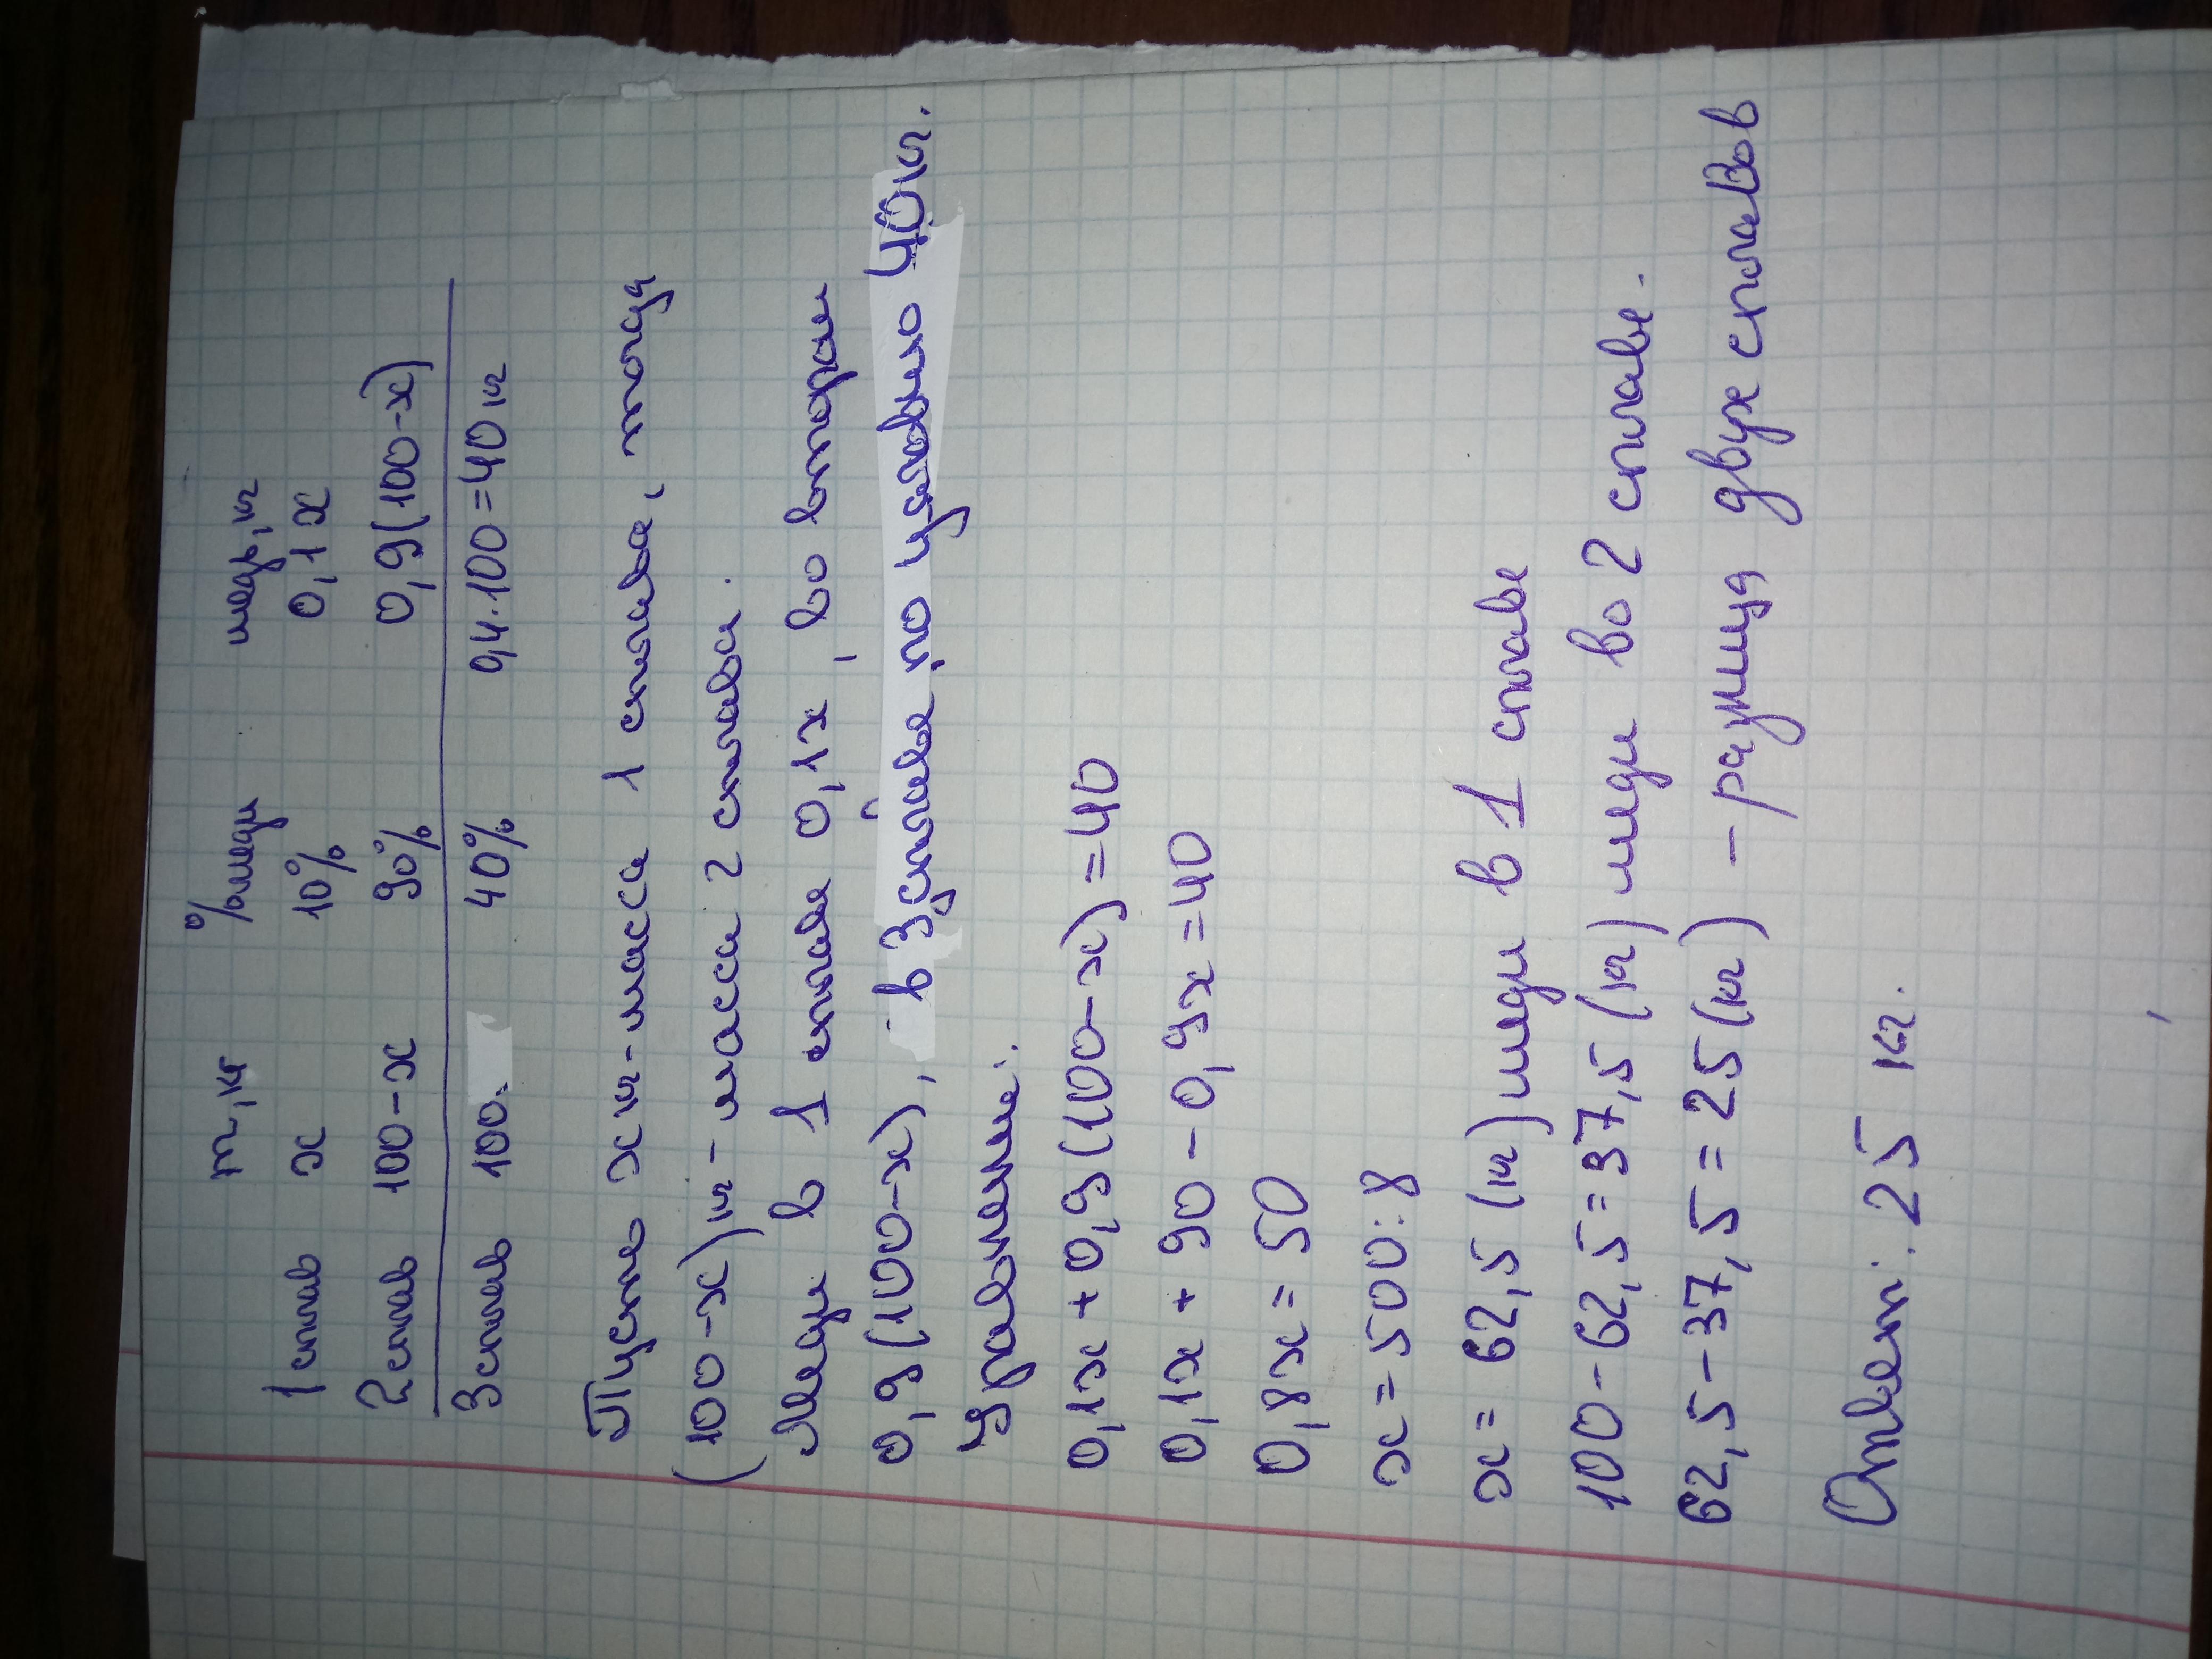 m, кг %меди медь, кг
1 сплав x 10% 0,1x
2 сплав 100-x 90% 0,9(100-x)
3 сплав 100. 40% 0,4·100=40 кг
Пусть x кг-масса 1 сплава, тогда
(100-x)кг-масса 2 сплава.
Меди в 1 сплаве 0,1x, во втором
0,9(100-x), в 3 сплаве по условию 40кг.
Уравнение:
0,1x+0,9(100-x)=40
0,1x+90-0,9x=40
0,8x=50
x=500:8
x=62,5 (кг) меди в 1 сплаве
100-62,5=37,5 (кг) меди во 2 сплаве.
62,5-37,5=25 (кг) - разница двух сплавов
Ответ: 25 кг.